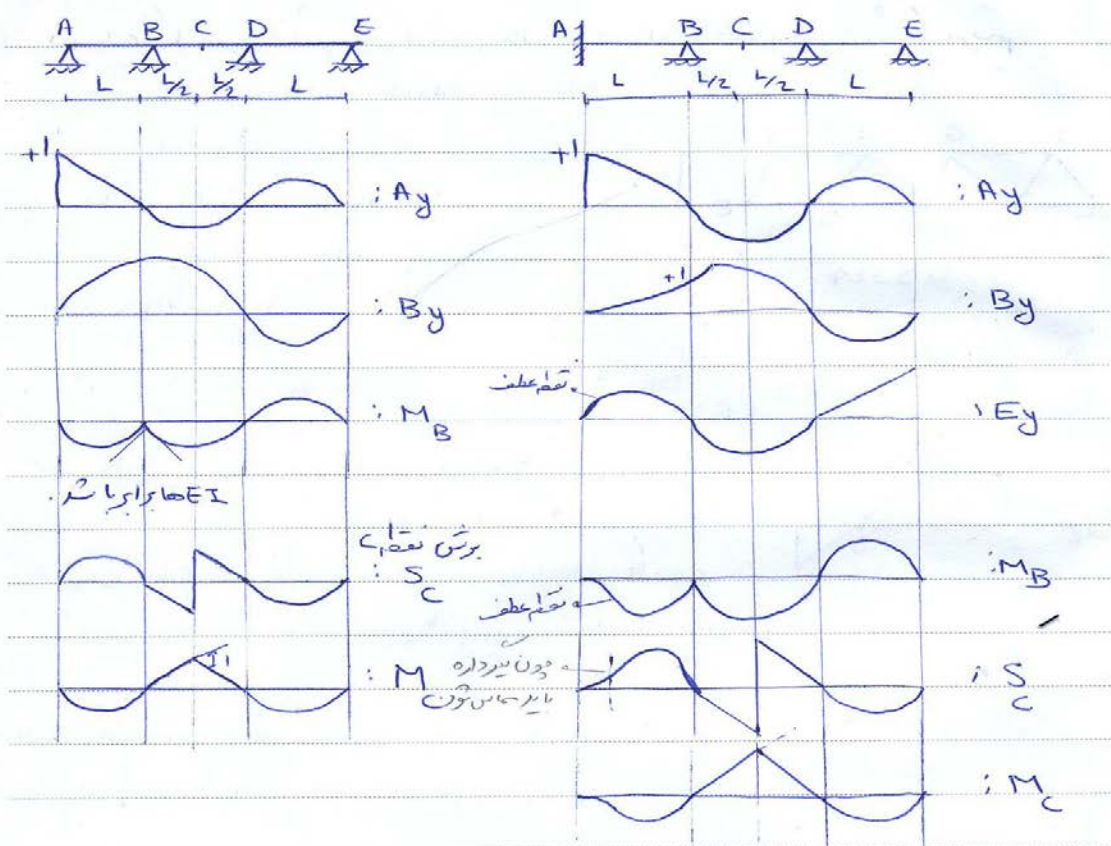 A B C D E
L L/2 L/2 L
+1
: Ay
: By
: M_B
EI ها برابر باشد.
برش نقطه C
: S_C
1
: M_C
A B C D E
L L/2 L/2 L
+1
: Ay
+1
: By
نقطه عطف
: Ey
: M_B
نقطه عطف
چون گیرداره
باید مماس شون
: S_C
: M_C